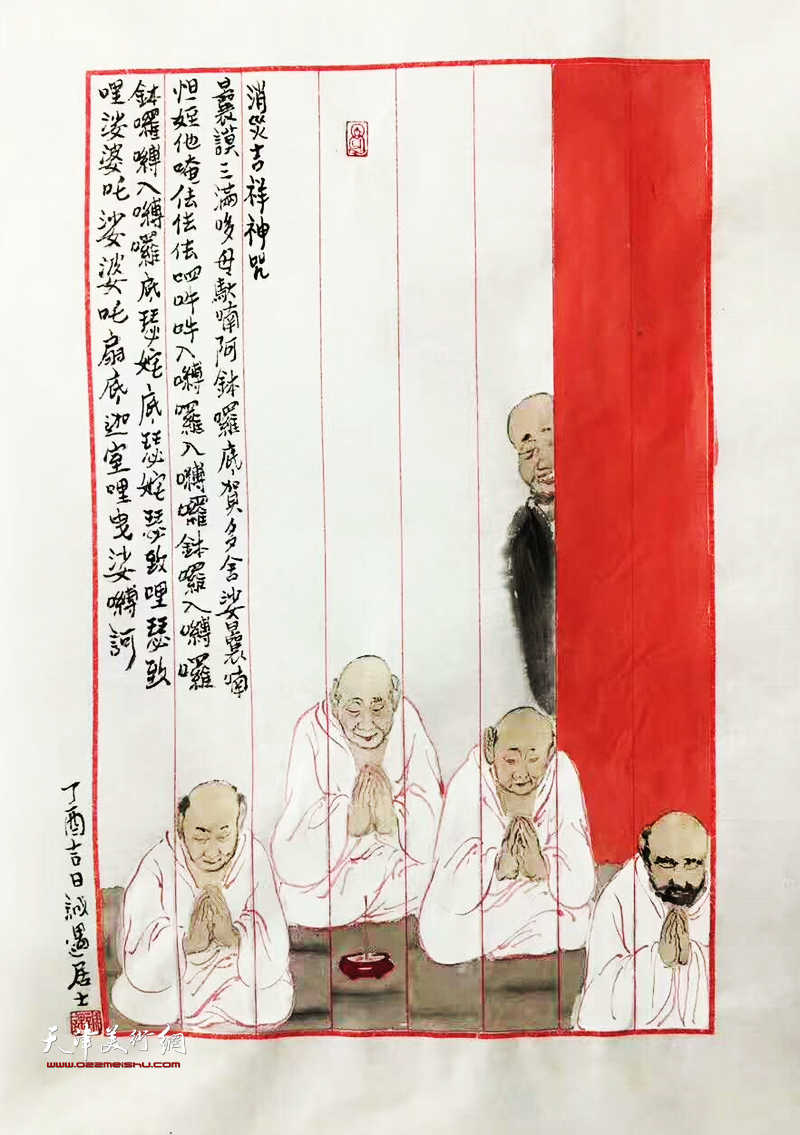 消災吉祥神咒
曩謨三滿哆母馱喃阿鉢囉底賀多舍娑曩喃
怛姪他唵佉佉佉呬吽吽入嚩囉入嚩囉鉢囉入嚩囉
鉢囉嚩入嚩囉底瑟姹底瑟姹瑟致哩瑟致
哩娑婆吒娑婆吒扇底迦室哩曳娑嚩訶
丁酉吉日誠邊居士
天津美術網
www.022meishu.com